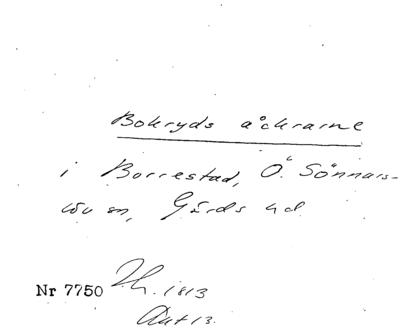 Bokryds åckrarne
i Borrestad, Ö. Sönnars-
löv sn, Gärds hd
Nr 7750 1813
Akt 13.